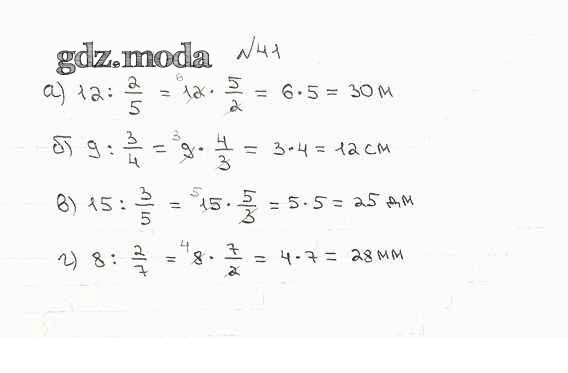 gdz.moda №41
а) 12 : 2/5 = ⁶12 · 5/2 = 6 · 5 = 30 м
б) 9 : 3/4 = ³9 · 4/3 = 3 · 4 = 12 см
в) 15 : 3/5 = ⁵15 · 5/3 = 5 · 5 = 25 дм
г) 8 : 2/7 = ⁴8 · 7/2 = 4 · 7 = 28 мм